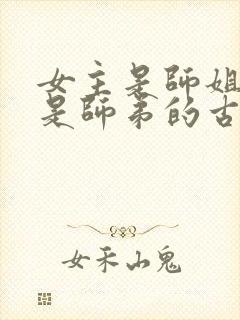 女主是師姐
是師弟的古
女禾山鬼